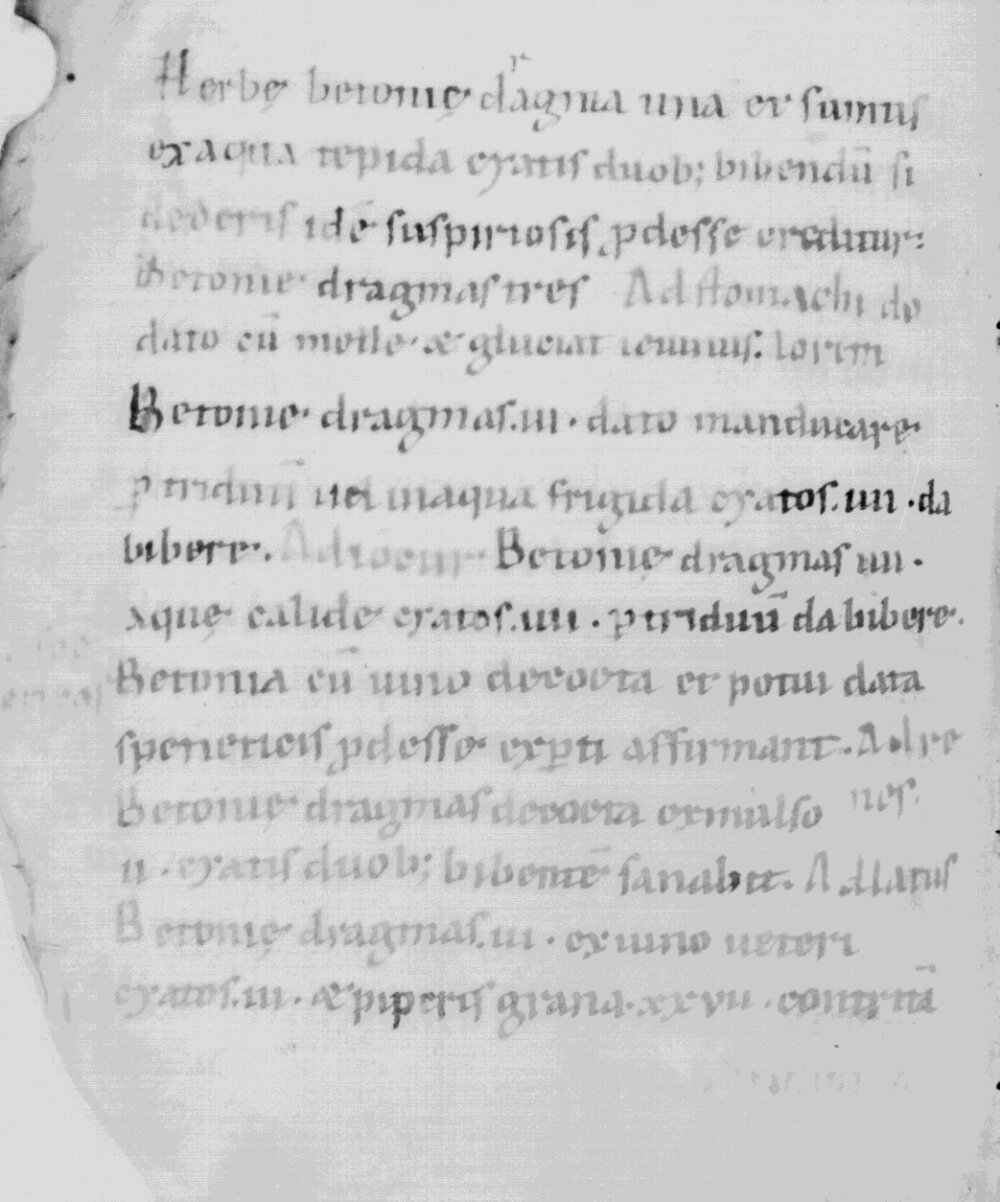 Herbę betonię dragma una et sumus
exaqua tepida cyatis duob; bibendū si
dederis idē suspiriosis ꝓdesse creditur:
Betonie dragmas tres Ad stomachi do
dato cū melle · æ gluciat ieiunus. lorem
Betonie · dragmas .iii · dato manducare
ꝑ triduū uel inaqua frigida cyatos .iiii · da
bibere. Betonię dragmas iiii ·
Aquę calide cyatos .iiii · ꝑ triduū da bibere.
Betonia cū uino decocta et potui data
spleneticis ꝓdesse exꝑti affirmant. Ad re
Betonie dragmas decocta exmulso nes.
ii · cyatis duob; bibentē sanabit. Ad latus
Betonię dragmas .iii · exuino ueteri
cyatos .iii · æ piperis grana · xxvii · contritā